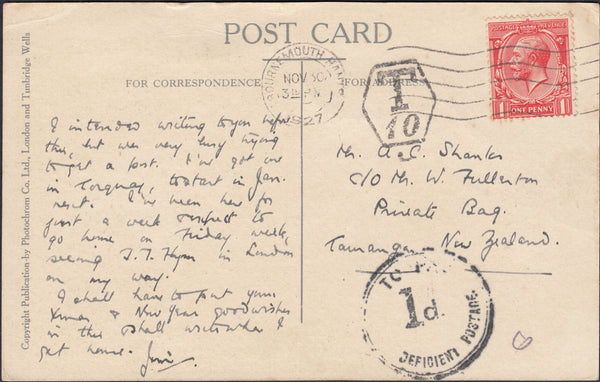 POST CARD
FOR CORRESPONDENCE
FOR ADDRESS
Copyright Publication by Photochrom Co. Ltd., London and Tunbridge Wells
BOURNEMOUTH
NOV 30
1927
T
10
POSTAGE REVENUE
ONE PENNY
I intended writing to you before
this, but was very busy trying
to get a post. I've got one
in Torquay, to start in Jan.
next. I've been here for
just a week & expect to
go home on Friday week,
seeing in London
on my way.
I shall have to put your
Xmas & New Year good wishes
in this & shall write when I
get home.
Mr. A. C. Shanks
C/O Mr. W. Fullerton
Private Bag.
New Zealand.
TO PAY
1d.
DEFICIENT POSTAGE.